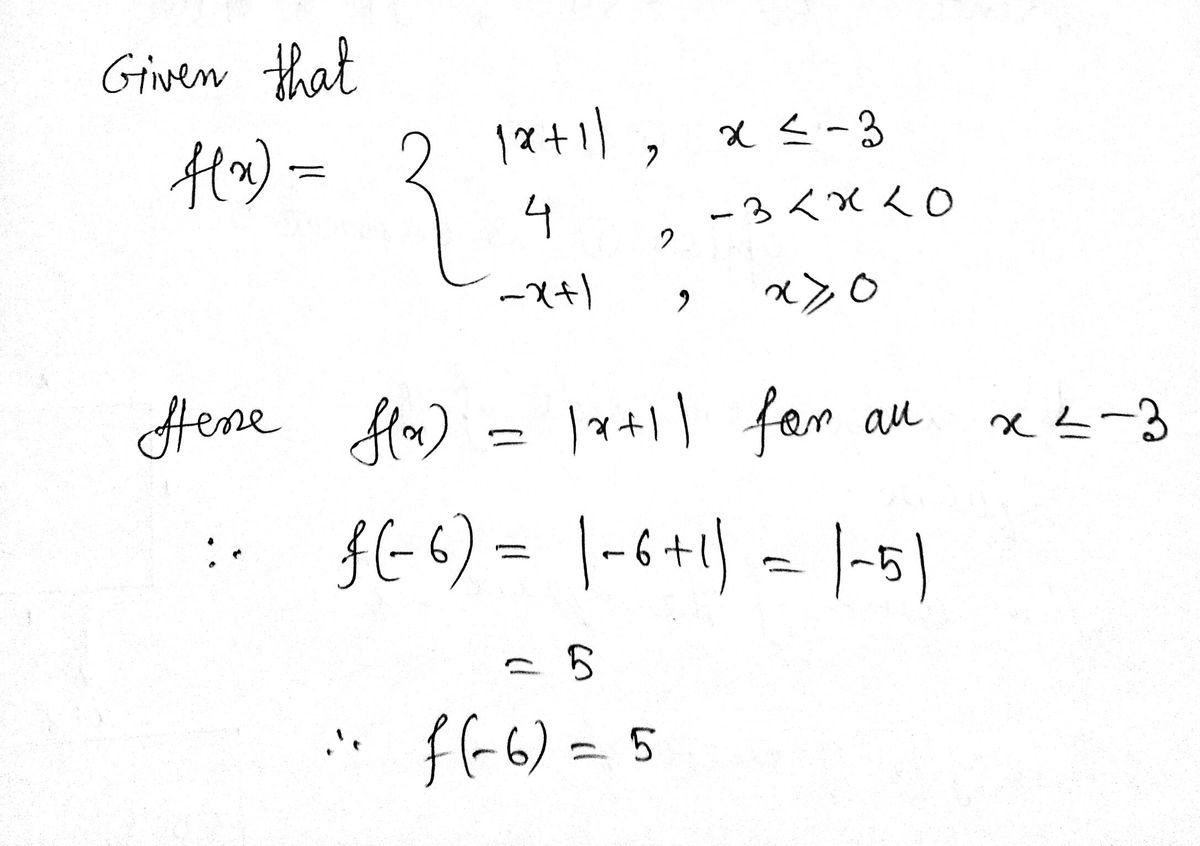 Given that
f(x) = { |x+1| , x ≤ -3
4 , -3 < x < 0
-x+1 , x ≥ 0
Here f(x) = |x+1| for all x ≤ -3
∴ f(-6) = |-6+1| = |-5|
= 5
∴ f(-6) = 5